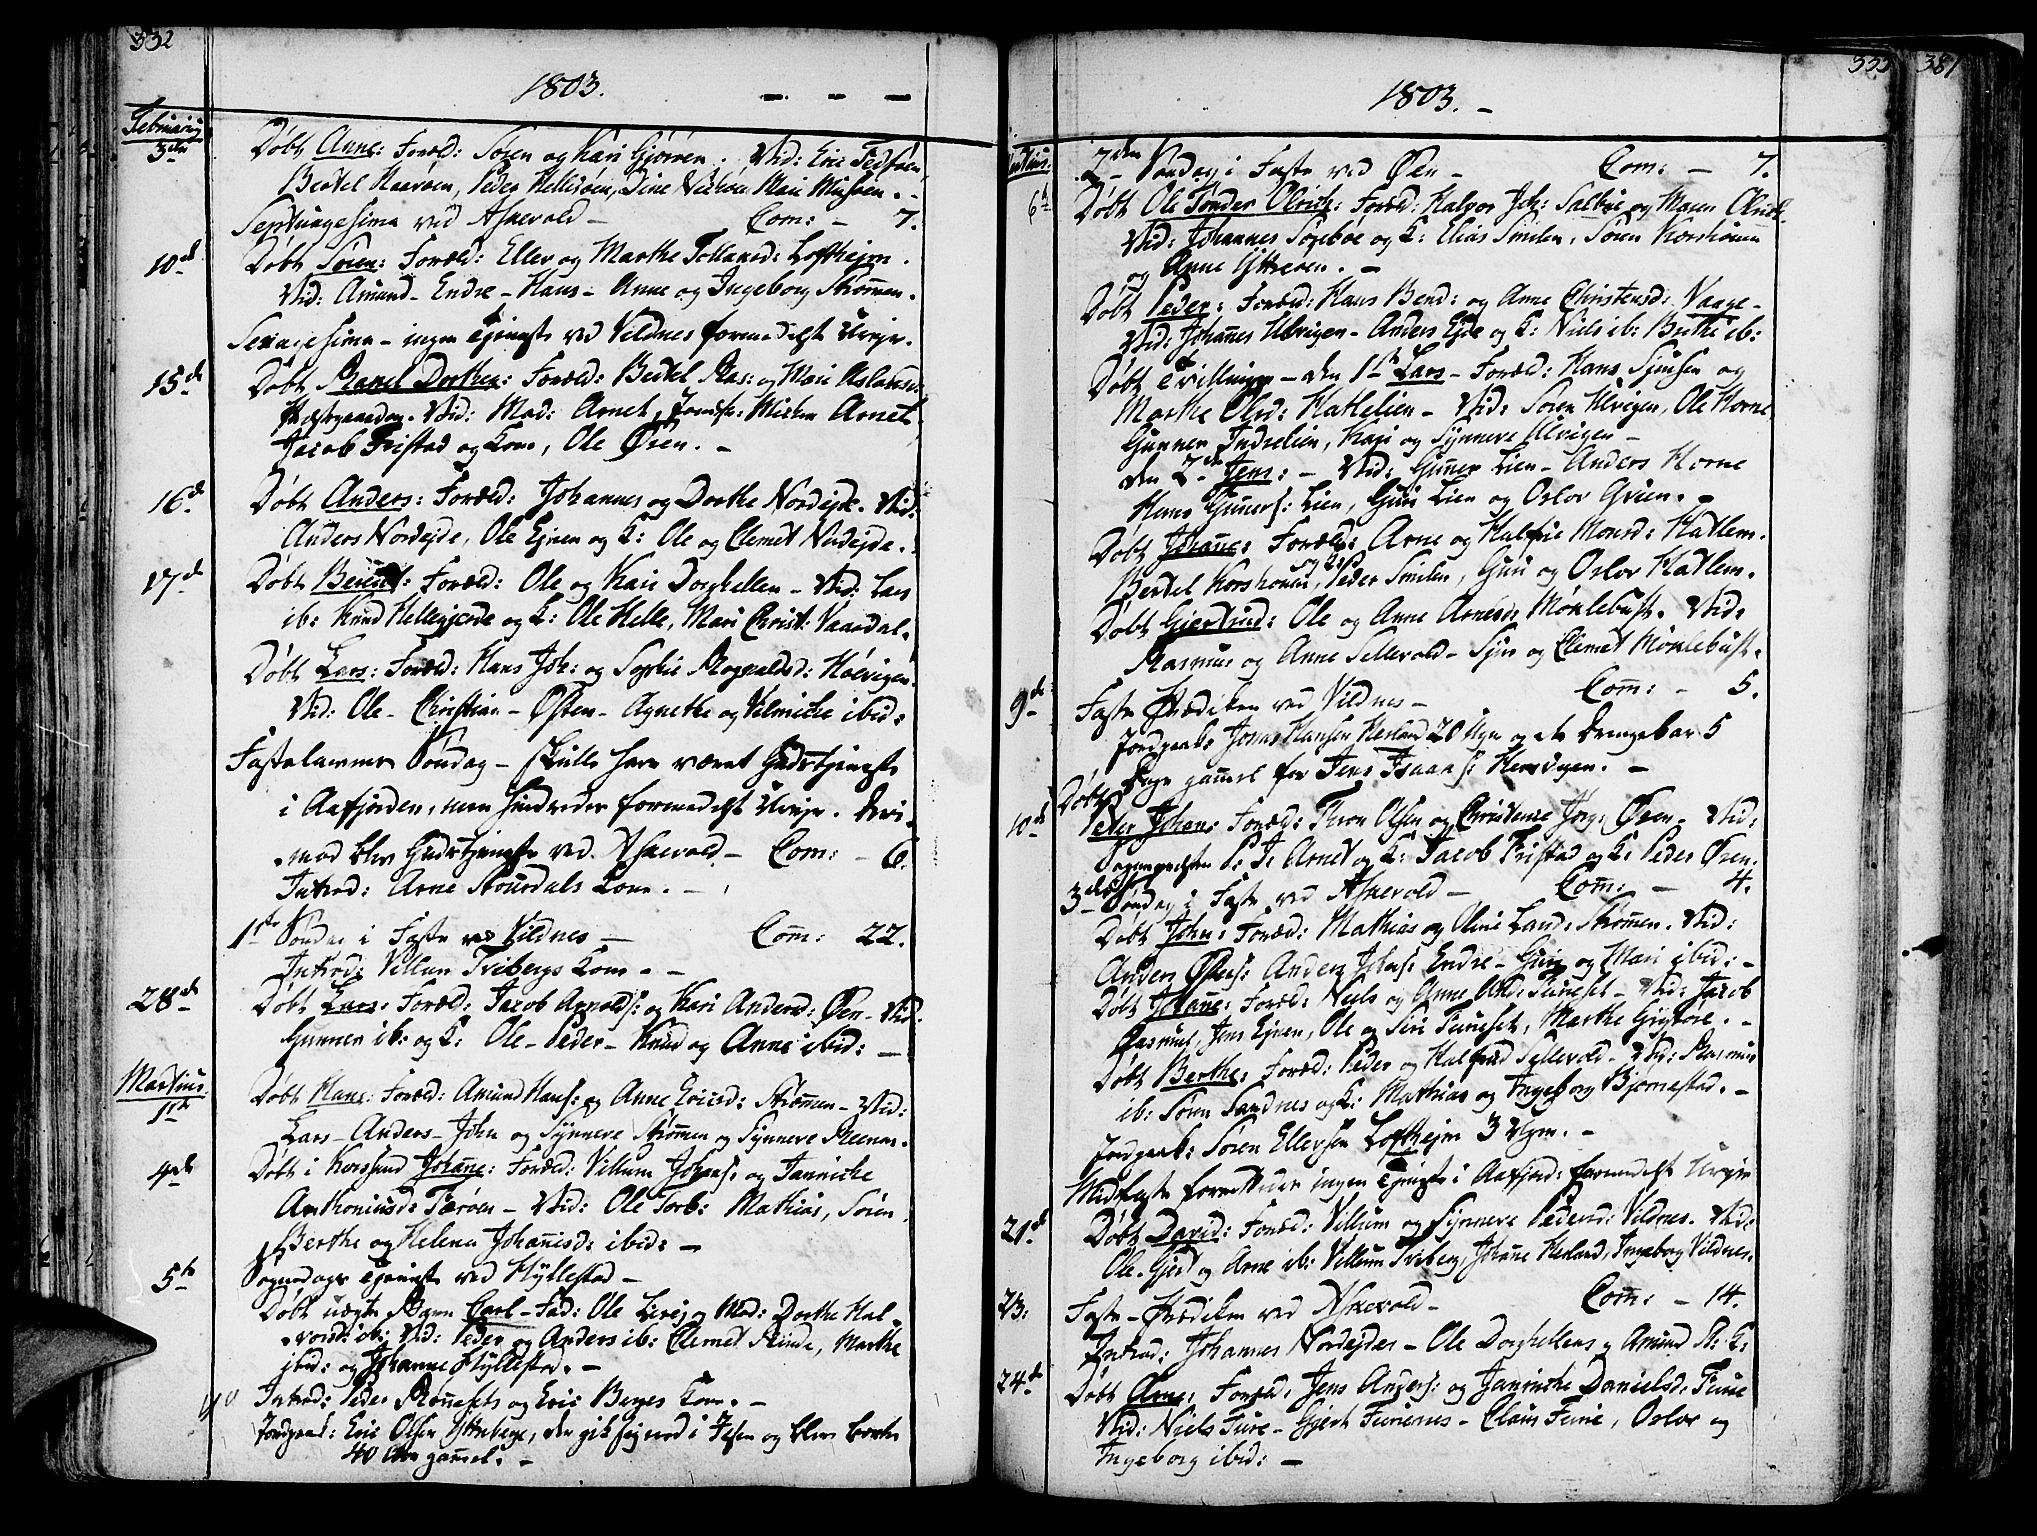 332
1803.
Februarij
3die Døbt Anne: Foræld: Søren og Kari Gjørøen. Vid: Eric
Bertel Naarøen, Peder Hellisøen, Sine Mari
Septuagesima ved Askevold – Com: – 7.
10de Døbt Søren: Foræld: Eller og Marthe Tollaved: Loftheim.
Vid: Amund – Endre – Hans – Anne og Ingeborg Strømmen.
Sexagesima – ingen Tjeneste ved Vildnes formedelst Uvejr.
15de Døbt Maret Dorthea: Foræld: Bertel Ras: og Mari Aslaksd:
Præstgaarden. Vid: Mad: Arnet, Jomfr: Arnet
Jacob Fristad og Kone, Ole Øren. –
16de Døbt Anders: Foræld: Johannes og Dorthe Nordejde. Vid:
Anders Nordejde, Ole Ejnen og K: Ole og Clemet Nordejde.
17de Døbt Berent: Foræld: Ole og Kari Dorghellen – Vid: Lars
ib: Knud Hellegjerde og K: Ole Helle, Mari Christ: Vaardal.
Døbt Lars: Foræld: Hans Joh: og Sophie Rognaldsd: Høevigen.
Vid: Ole – Christian – Østen – Agnethe og Vilmiche ibid:
Fastelavens Søndag – skulle have været Gudstjeneste
i Aafjorden, men hindredes formedelst Uvejr. Deri-
mod blev Gudstjeneste ved Askevold – Com: – 6.
Introd: Arne Stoursdals Kone. –
1ste Søndag i Faste ved Vildnes – Com: 22.
Introd: Villum Tvibergs Kone. –
28de Døbt Lars: Foræld: Jacob Arnolds: og Kari Andersd: Øen – Vid:
Gunner ib: og K: Ole – Peder – Knud og Anne ibid: –
Martius.
1ste Døbt Hans: Foræld: Amund Hans: og Anne Ericsd: Strømmen – Vid:
Lars – Anders – John og Synneve Strømmen og Synneve
4de Døbt i Korssund Johane: Foræld: Villum Johans: og Janniche
Anthoniusd: Tærøen – Vid: Ole Torb: Mathias, Søren,
Berthe og Helena Johanisd: ibid: –
5te Sognedags Tjeneste ved Hyllestad –
Døbt uægte Barn Carl – Fad: Ole og Mod: Dorthe Hal-
vorsd: ib: Vid: Peder og Anders ib: Clemet Marthe
ibid: og Johanne Hyllestad. –
Introd: Peder og Eric Berges Kone. –
Jordpaak: Eric Olsen Ytreberge, der gik sig ned i Isen og blev borte
40 Aar gammel. –
333
381
1803. –
Martius.
2den Søndag i Faste ved Øen – Com: – 7.
6te Døbt Ole Tønder Olrich: Foræld: Halvor Joh: Salbue og Maren
Vid: Johannes Søgeboe og K: Elias Smilen, Søren Korshavn
og Anne Ytreøen. –
Døbt Peder: Foræld: Hans Bend: og Anne Christensd: Vaage –
Vid: Johannes Ulvigen – Anders Ejde og K: Niels ib: Berthe ib:
Døbt Tvillinger – den 1ste Lars – Foræld: Hans og
Marthe Olsd: Hatlelien – Vid: Søren Ulvigen, Ole Horne
Gunner Indrelien, Kari og Synneve Ulvigen –
den 2de Jens: – Vid: Gunner Lien – Anders Horne
Hans Gunners: Lien, Guri Lien og Oslov –
Døbt Johane: Foræld: Arne og Halfrie Monsd: Hatlem.
Bertel Korshavn, Peder Smilen, Guri og Oslov Hatlem.
Døbt Giertrud: Ole og Anne Arnesd: Møklebust. Vid:
Rasmus og Anne Sellevold – Siri og Clemet Møklebust.
9de Faste Prædiken ved Vildnes – Com: – 5.
Jordpaak: Jonas Hansen Herland 20 Ugr og et Drengebar 5
Dage gammel for Jens Isaachs: Hervigen. –
10de Døbt Peder Johan: Foræld: Thron Olsen og Christense Jørg: Øren. Vid:
Sognepræsten P. J: Arnet og K: Jacob Fristad og K: Peder Øren.
3die Søndag i Faste ved Askevold – Com: – 4.
Døbt John: Foræld: Mathias og Oline Land: Strømmen. Vid:
Anders Østens: Anders Johns: Endre – Guri og Mari ibid: –
Døbt Johane: Foræld: Niels og Anne And: Tuneset – Vid: Jacob
Rasmus, Jens Ejnen, Ole og Siri Tuneset, Marthe –
Døbt Berthe: Foræld: Peder og Halfrid Sellevold – Vid: Rasmus
ib: Søren Sandnes og K: Mathias og Ingeborg Bjørnestad. –
Jordpaak: Søren Ellersen Loftheim 3 Ugr. –
Midfaste forrettedes ingen Tjeneste i Aafjord: formedelst Uvejr
21de Døbt David: Foræld: Villum og Synneve Pedersd: Vildnes. Vid:
Ole. Gjert og Arne ib: Villum Tviberg, Johane Herland, Ingeborg Vildnes.
23: Faste-Prædiken ved Askevold – Com: – 14.
Introd: Johannes Nordejdes – Ole Dorghellens og Amund St: K:
24de Døbt Arne: Foræld: Jens Anders: og Janniche Danielsd: Furie
Vid: Niels Furie – Gjert Furienes – Claus Furie, Oslov og
Ingeborg ibid: –